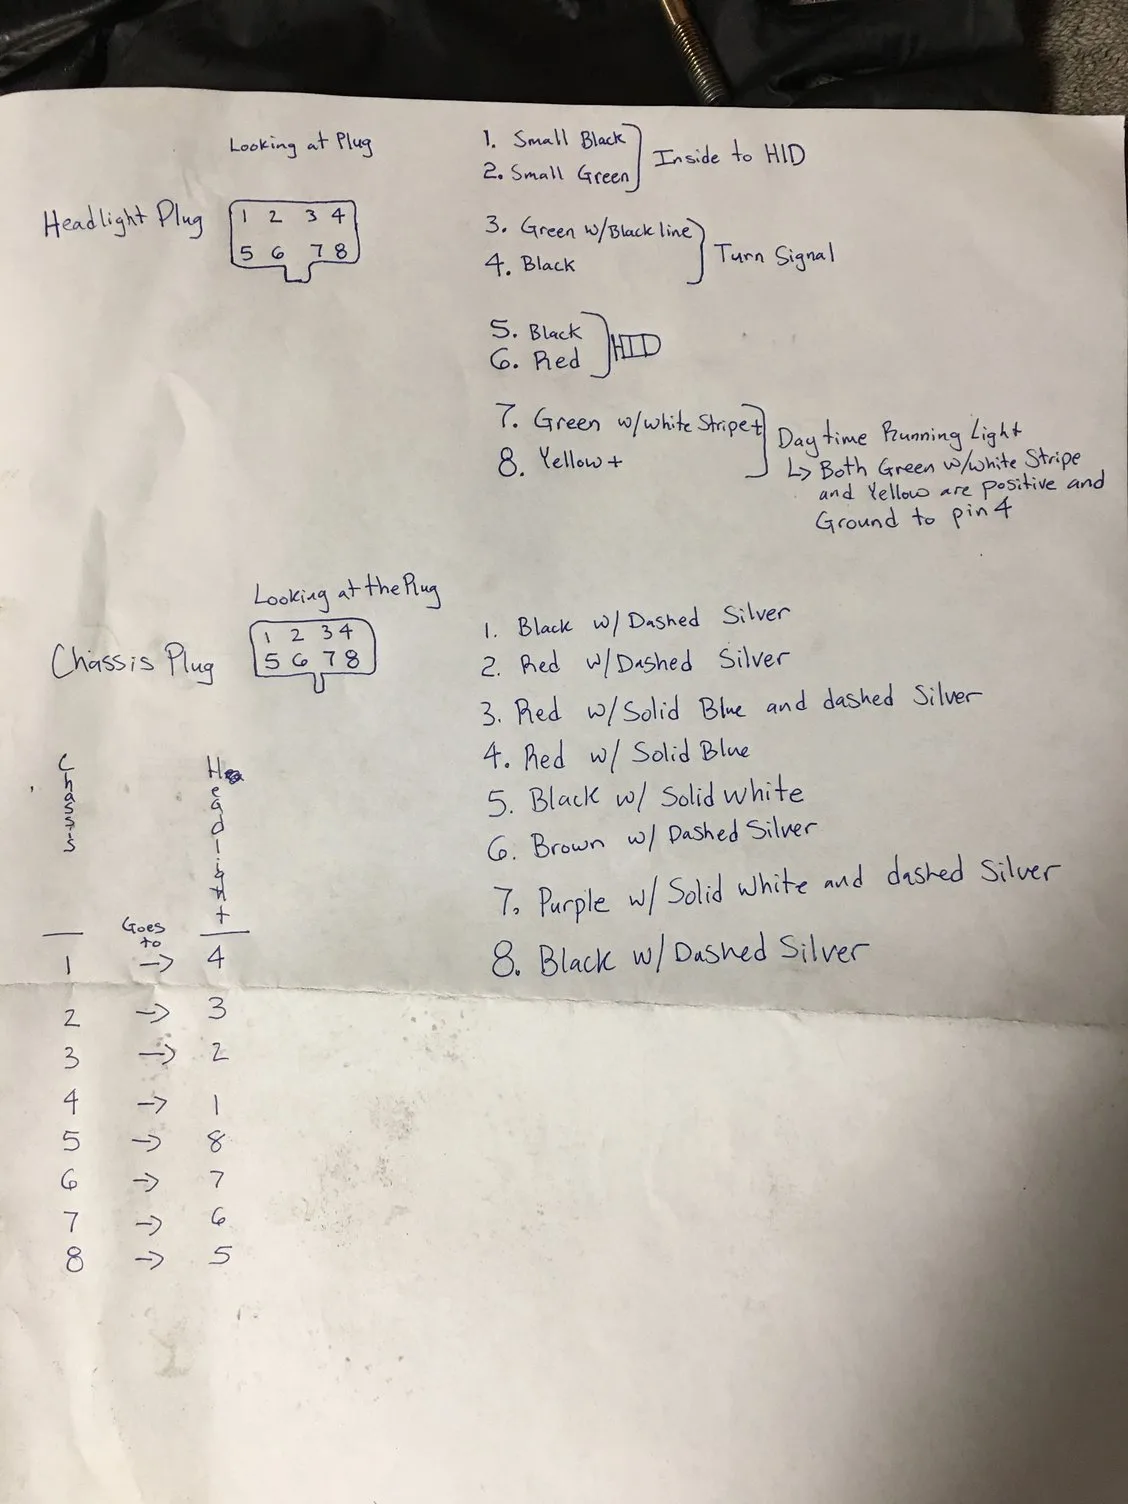 Looking at Plug
Headlight Plug
1 2 3 4
5 6 7 8
1. Small Black
2. Small Green
Inside to HID
3. Green w/Black line
4. Black
Turn Signal
5. Black
6. Red
HID
7. Green w/white Stripe +
8. Yellow +
Daytime Running Light
↳ Both Green w/white Stripe
and Yellow are positive and
Ground to pin 4
Looking at the Plug
Chassis Plug
1 2 3 4
5 6 7 8
1. Black w/ Dashed Silver
2. Red w/Dashed Silver
3. Red w/Solid Blue and dashed Silver
4. Red w/ Solid Blue
5. Black w/ Solid white
6. Brown w/ Dashed Silver
7. Purple w/ Solid white and dashed Silver
8. Black w/Dashed Silver
Chassis
Goes
to
Headlight
1 → 4
2 → 3
3 → 2
4 → 1
5 → 8
6 → 7
7 → 6
8 → 5